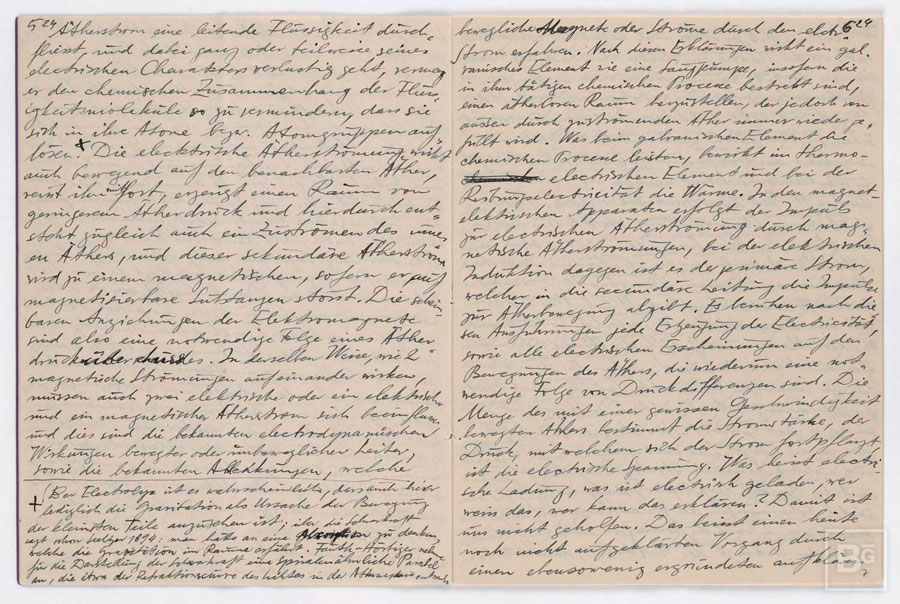 5 24
Ätherstrom eine leitende Flüssigkeit durch-
fliesst, und dabei ganz oder teilweise seines
electrischen Charakters verlustig geht, vermag
er den chemischen Zusammenhang der Flüss-
igkeitsmoleküle so zu vermindern, dass sie
sich in ihre Atome bezw. Atomgruppen auf-
lösen. + Die electrische Ätherströmung wirkt
auch bewegend auf den benachbarten Äther,
reisst ihn fort, erzeugt einen Raum von
geringerem Ätherdruck und hierdurch ent-
steht zugleich auch ein Zuströmen des
Äthers, und dieser secundäre Ätherstrom
wird zu einem magnetischen, sofern er auf
magnetisierbare Substanzen stösst. Die schein-
baren Anziehungen der Elektromagnete
sind also eine notwendige Folge eines Äther-
drucküberschusses. In derselben Weise, wie 2
magnetische Strömungen aufeinander wirken,
müssen auch zwei elektrische oder ein elektrischer
und ein magnetischer Ätherstrom sich beeinflussen
und dies sind die bekannten electrodynamischen
Wirkungen bewegter oder unbeweglicher Leiter,
sowie die bekannten Ablenkungen, welche
+ (Der Electrolyse ist es wahrscheinlich, dass auch hier
lediglich die Gravitation als Ursache der Bewegung
der kleinsten Teile anzusehen ist;
sagt schon 1894: man hätte an eine zu denken
welche die Gravitation im Raume erfährt.
für die Darstellung der eine Spiralenähnliche
an, die etwa der Refraktionscurve des Lichtes in der
5 24
bewegliche Magnete oder Ströme durch den elctr.
Strom erfahren. Nach diesen Erklärungen wirkt ein gal-
vanisches Element wie eine Saugpumpe, insofern die
in ihm tätigen chemischen Processe bestrebt sind,
einen ätherlosen Raum herzustellen, der jedoch von
aussen durch zuströmenden Äther immer wieder ge-
füllt wird. Was beim galvanischen Element die
chemischen Processe leisten, bewirkt im thermo-
electrischen Element und bei der
Reibungselectricität die Wärme. In den magnet-
elektrischen Apparaten erfolgt der Impuls
zur electrischen Ätherströmung durch mag-
netische Ätherströmungen, bei der elektrischen
Induktion dagegen ist es der primäre Strom,
welcher in die secundäre Leitung die Impulse
zur Ätherbewegung abgibt. Es beruhen nach die-
sen Ausführungen jede Erzeugung der Electricität
sowie alle electrischen Erscheinungen auf den
Bewegungen des Äthers, die wiederum eine not-
wendige Folge von Druckdifferenzen sind. Die
Menge des mit einer gewissen Geschwindigkeit
bewegten Äthers bestimmt die Stromstärke, der
Druck, mit welchem sich der Strom fortpflanzt
ist die electrische Spannung. Was heisst electri-
sche Ladung, was ist electrisch geladen, wer
weiss das, wer kann das erklären? Damit ist
uns nicht geholfen. Das heisst einen heute
noch nicht aufgeklärten Vorgang durch
einen ebensowenig ergründeten aufklären
BG